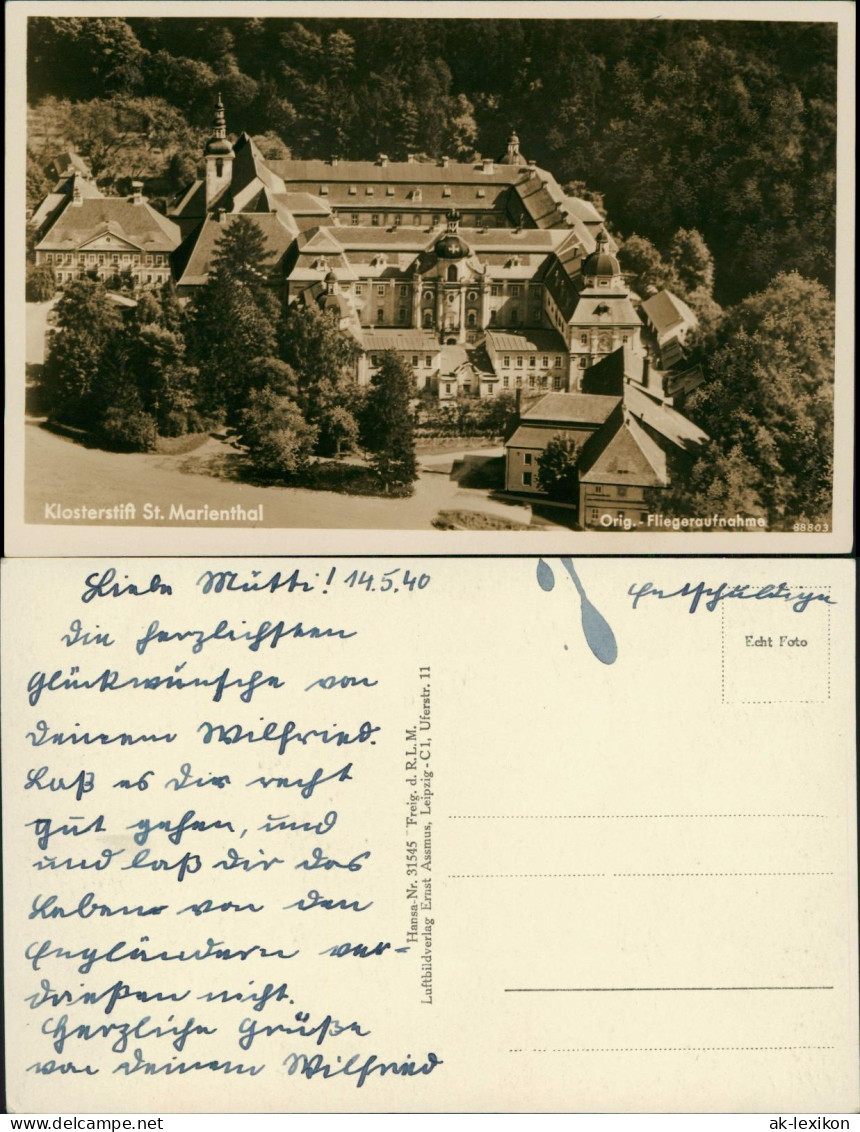 Klosterstift St. Marienthal
Orig.-Fliegeraufnahme
88803
Liebe Mutti! 14.5.40
Die herzlichsten
Glückwünsche von
Deinem Wilfried.
Laß es Dir recht
gut gehen, und
und laß dir das
Leben von den
Engländern ver-
drießen nicht.
Herzliche Grüße
von Deinem Wilfried
Entschuldige
Echt Foto
Hansa-Nr. 31545 Freig. d. R.L.M.
Luftbildverlag Ernst Assmus, Leipzig-C 1, Uferstr. 11
www.delcampe.net
ak-lexikon